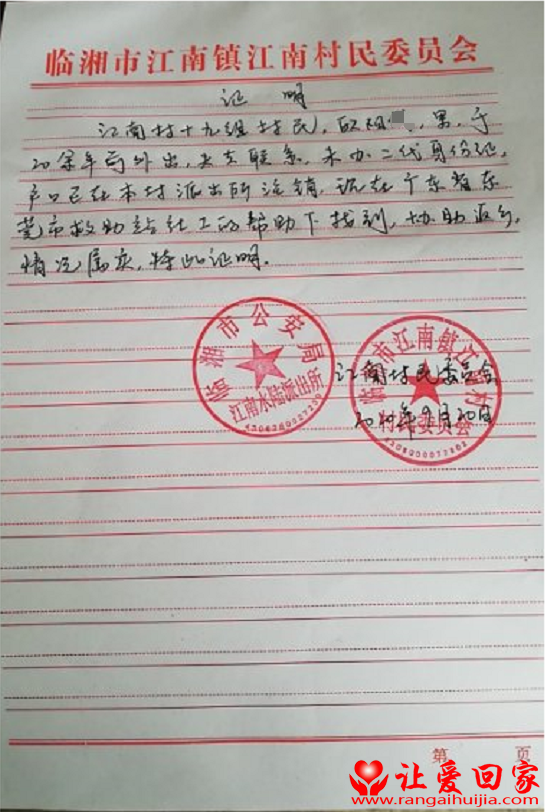 临湘市江南镇江南村民委员会
证明
江南村十九组村民，欧阳，男，于
20余年前外出，失去联系，未办二代身份证，
户口已在本村派出所注销，现在广东省东
莞市救助站社工的帮助下找到，协助返乡，
情况属实，特此证明。
临湘市公安局
江南水陆派出所
江南村民委员会
9月20日
第 页
让爱回家
www.rangaihuijia.com